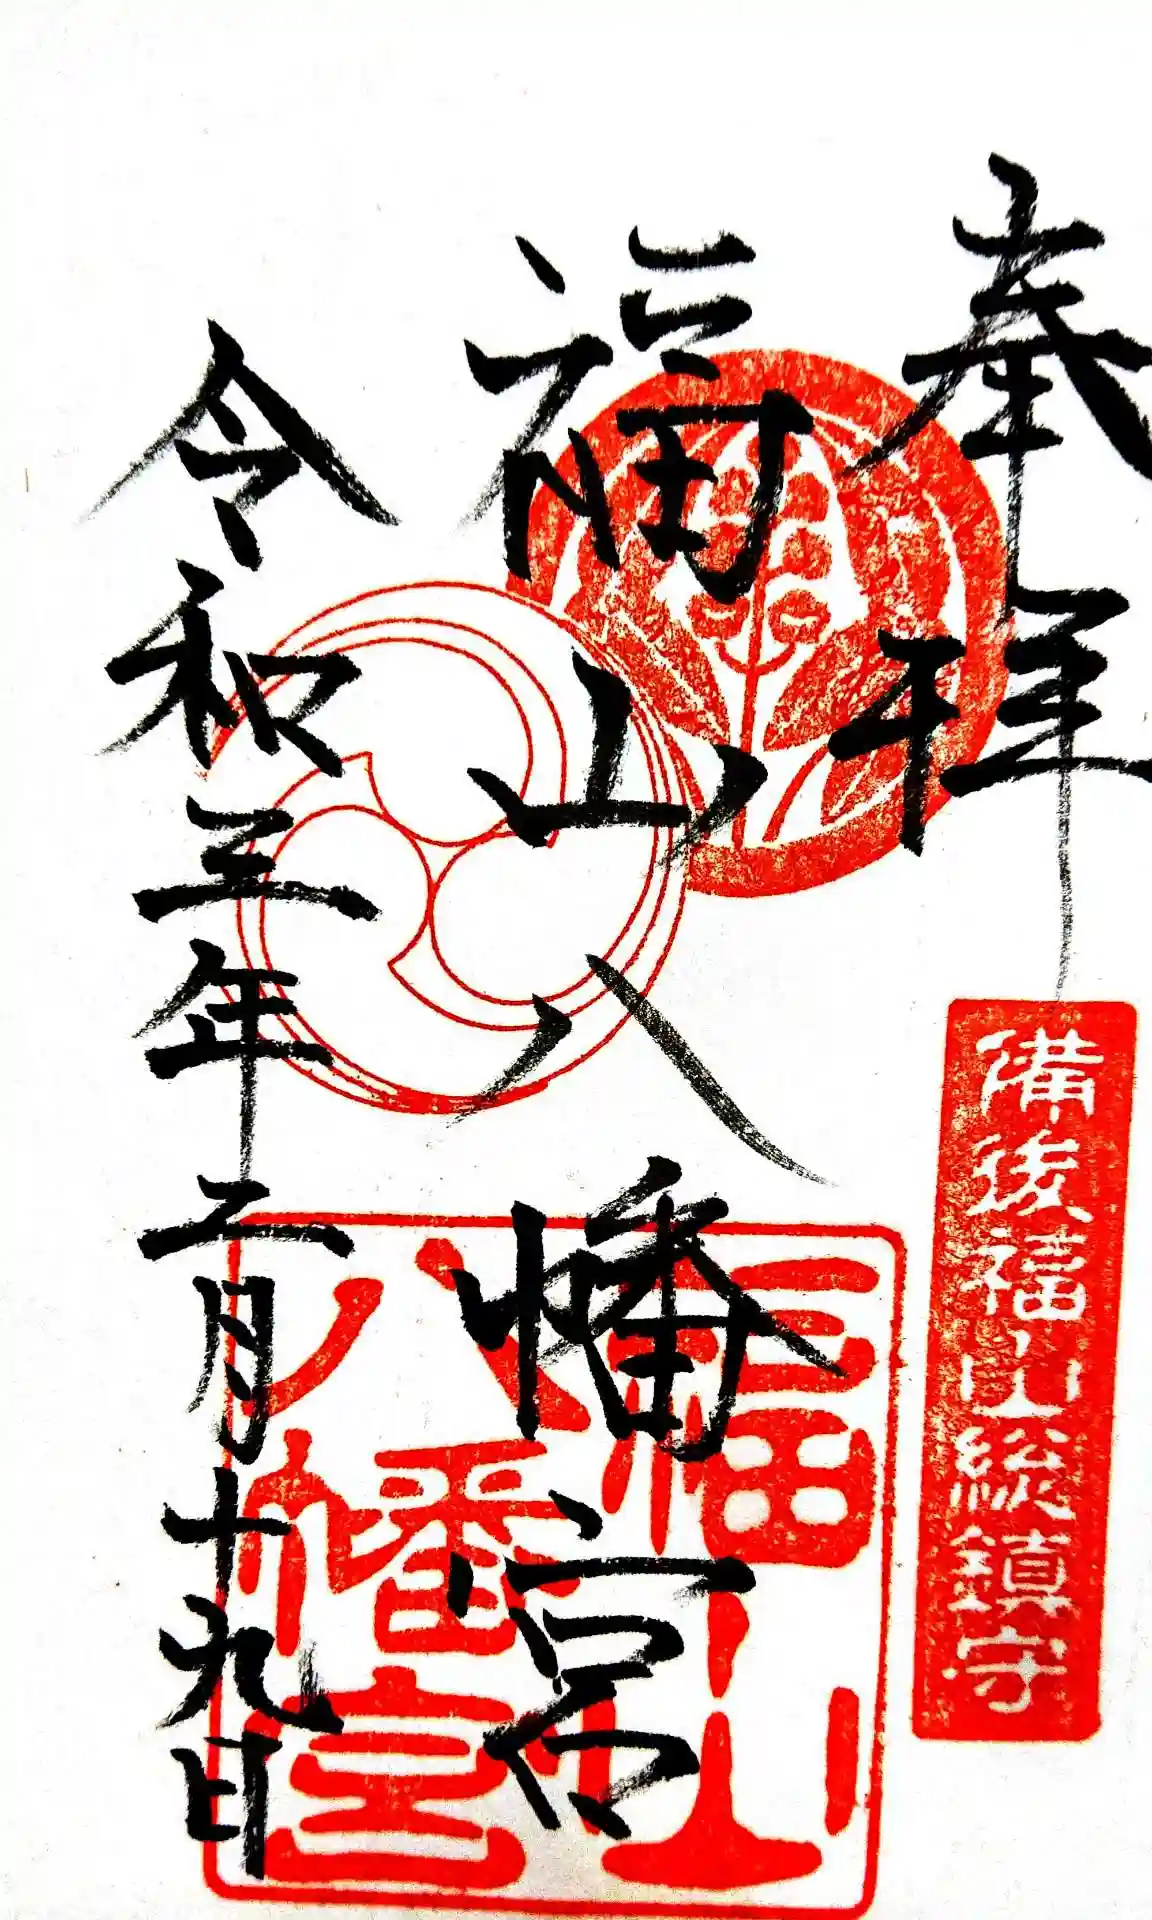 奉拝
備後福山総鎮守
福山八幡宮
福山
八幡宮
令和三年二月十九日